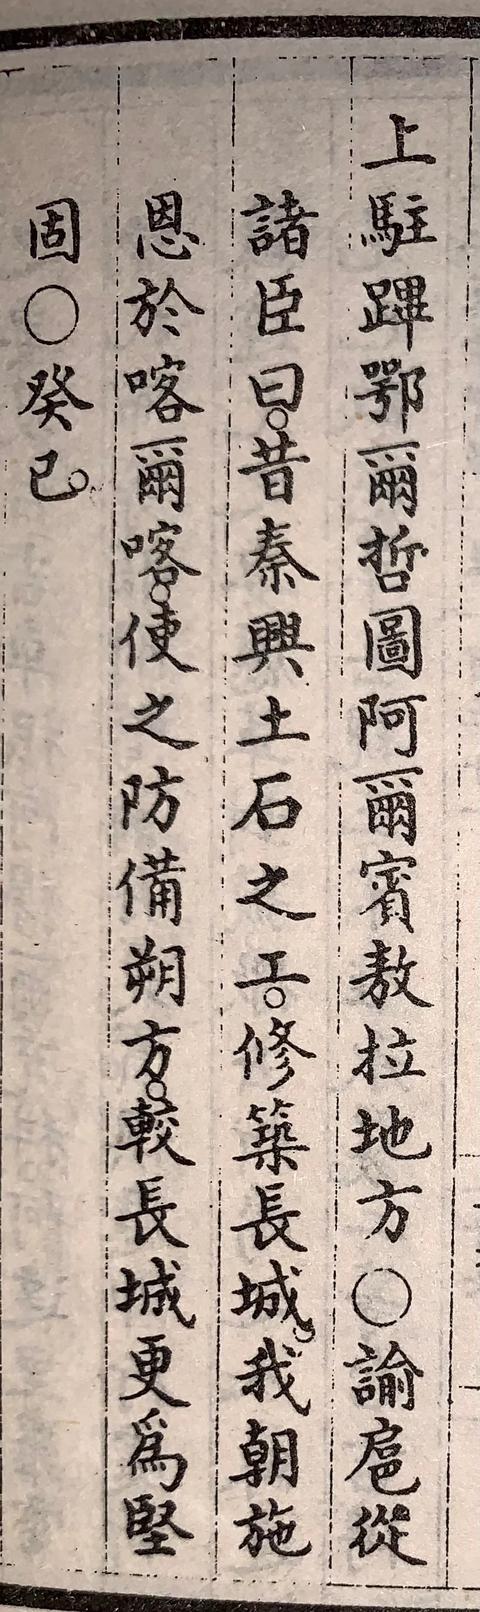 上駐蹕鄂爾哲圖阿爾賓敖拉地方○諭扈從
諸臣曰。昔秦興土石之工。修築長城。我朝施
恩於喀爾喀。使之防備朔方。較長城更爲堅
固○癸巳。